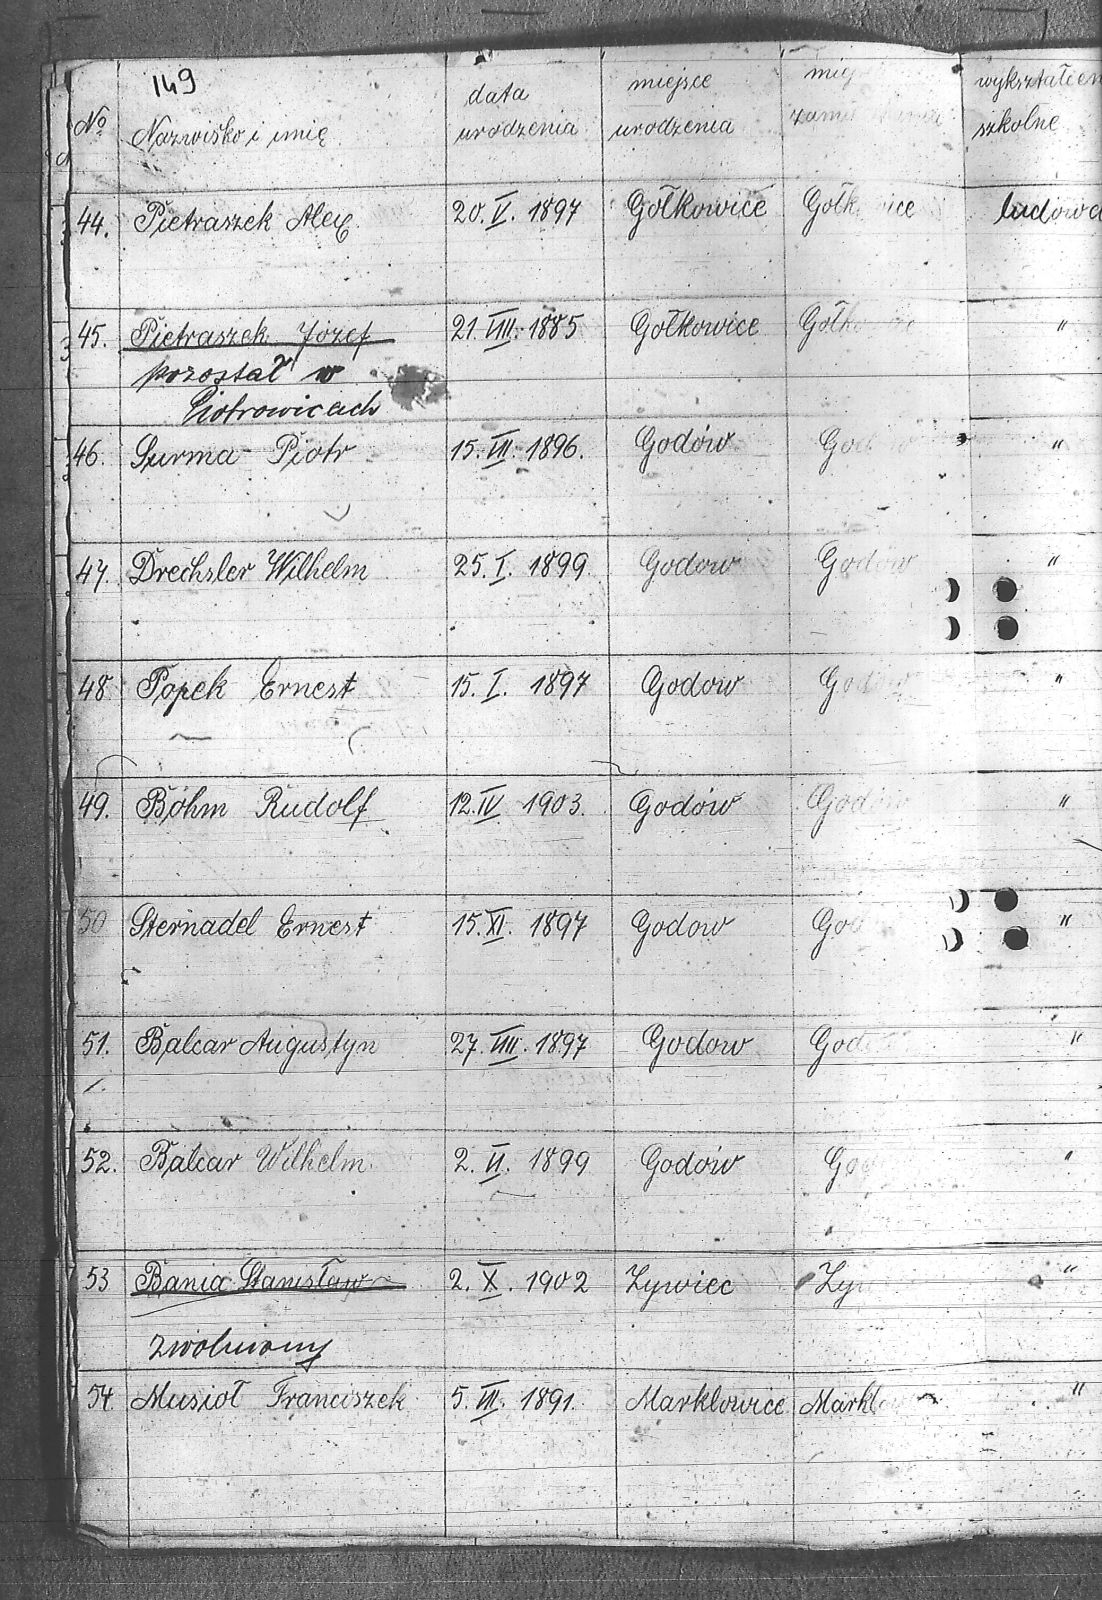 149
No Nazwisko i imię data urodzenia miejsce urodzenia wykształcen szkolne
44. Pietraszek Alex. 20. V. 1897 Gołkowice Gołk ice ludowa
45. Pietraszek Józef 21. VIII. 1885 Gołkowice Gołko "
pozostał w
Piotrowicach
46. Surma Piotr 15. VII. 1896. Godów God "
47. Drechsler Wilhelm 25. I. 1899. Godow Godów "
48. Popek Ernest 15. I. 1897 Godow Godów "
49. Böhm Rudolf 12. IV. 1903. Godów Godów "
50 Sternadel Ernest 15. XI. 1897 Godow God "
51. Balcar Augustyn 27. VIII. 1897 Godow God "
52. Balcar Wilhelm. 2. II. 1899 Godów God "
53 Bania Stanisław 2. X. 1902 Zywiec Zyw "
zwolniony
54. Musioł Franciszek 5. III. 1891. Marklowice Markl "